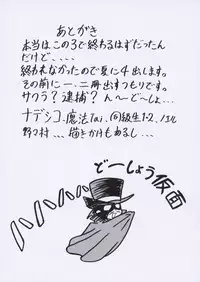 あとがき
本当はこの3で終わるはずだったん
だけど、、、、
終われなかったので夏に4出します。
その前に一、二冊出すつもりです。
サクラ?逮捕?ん〜ど〜しよ...
ナデシコ、魔法Tai、同級生1・2、ノエル
野々村、、、描きかけもあるし...
どーしょう仮面
ハハハハハ